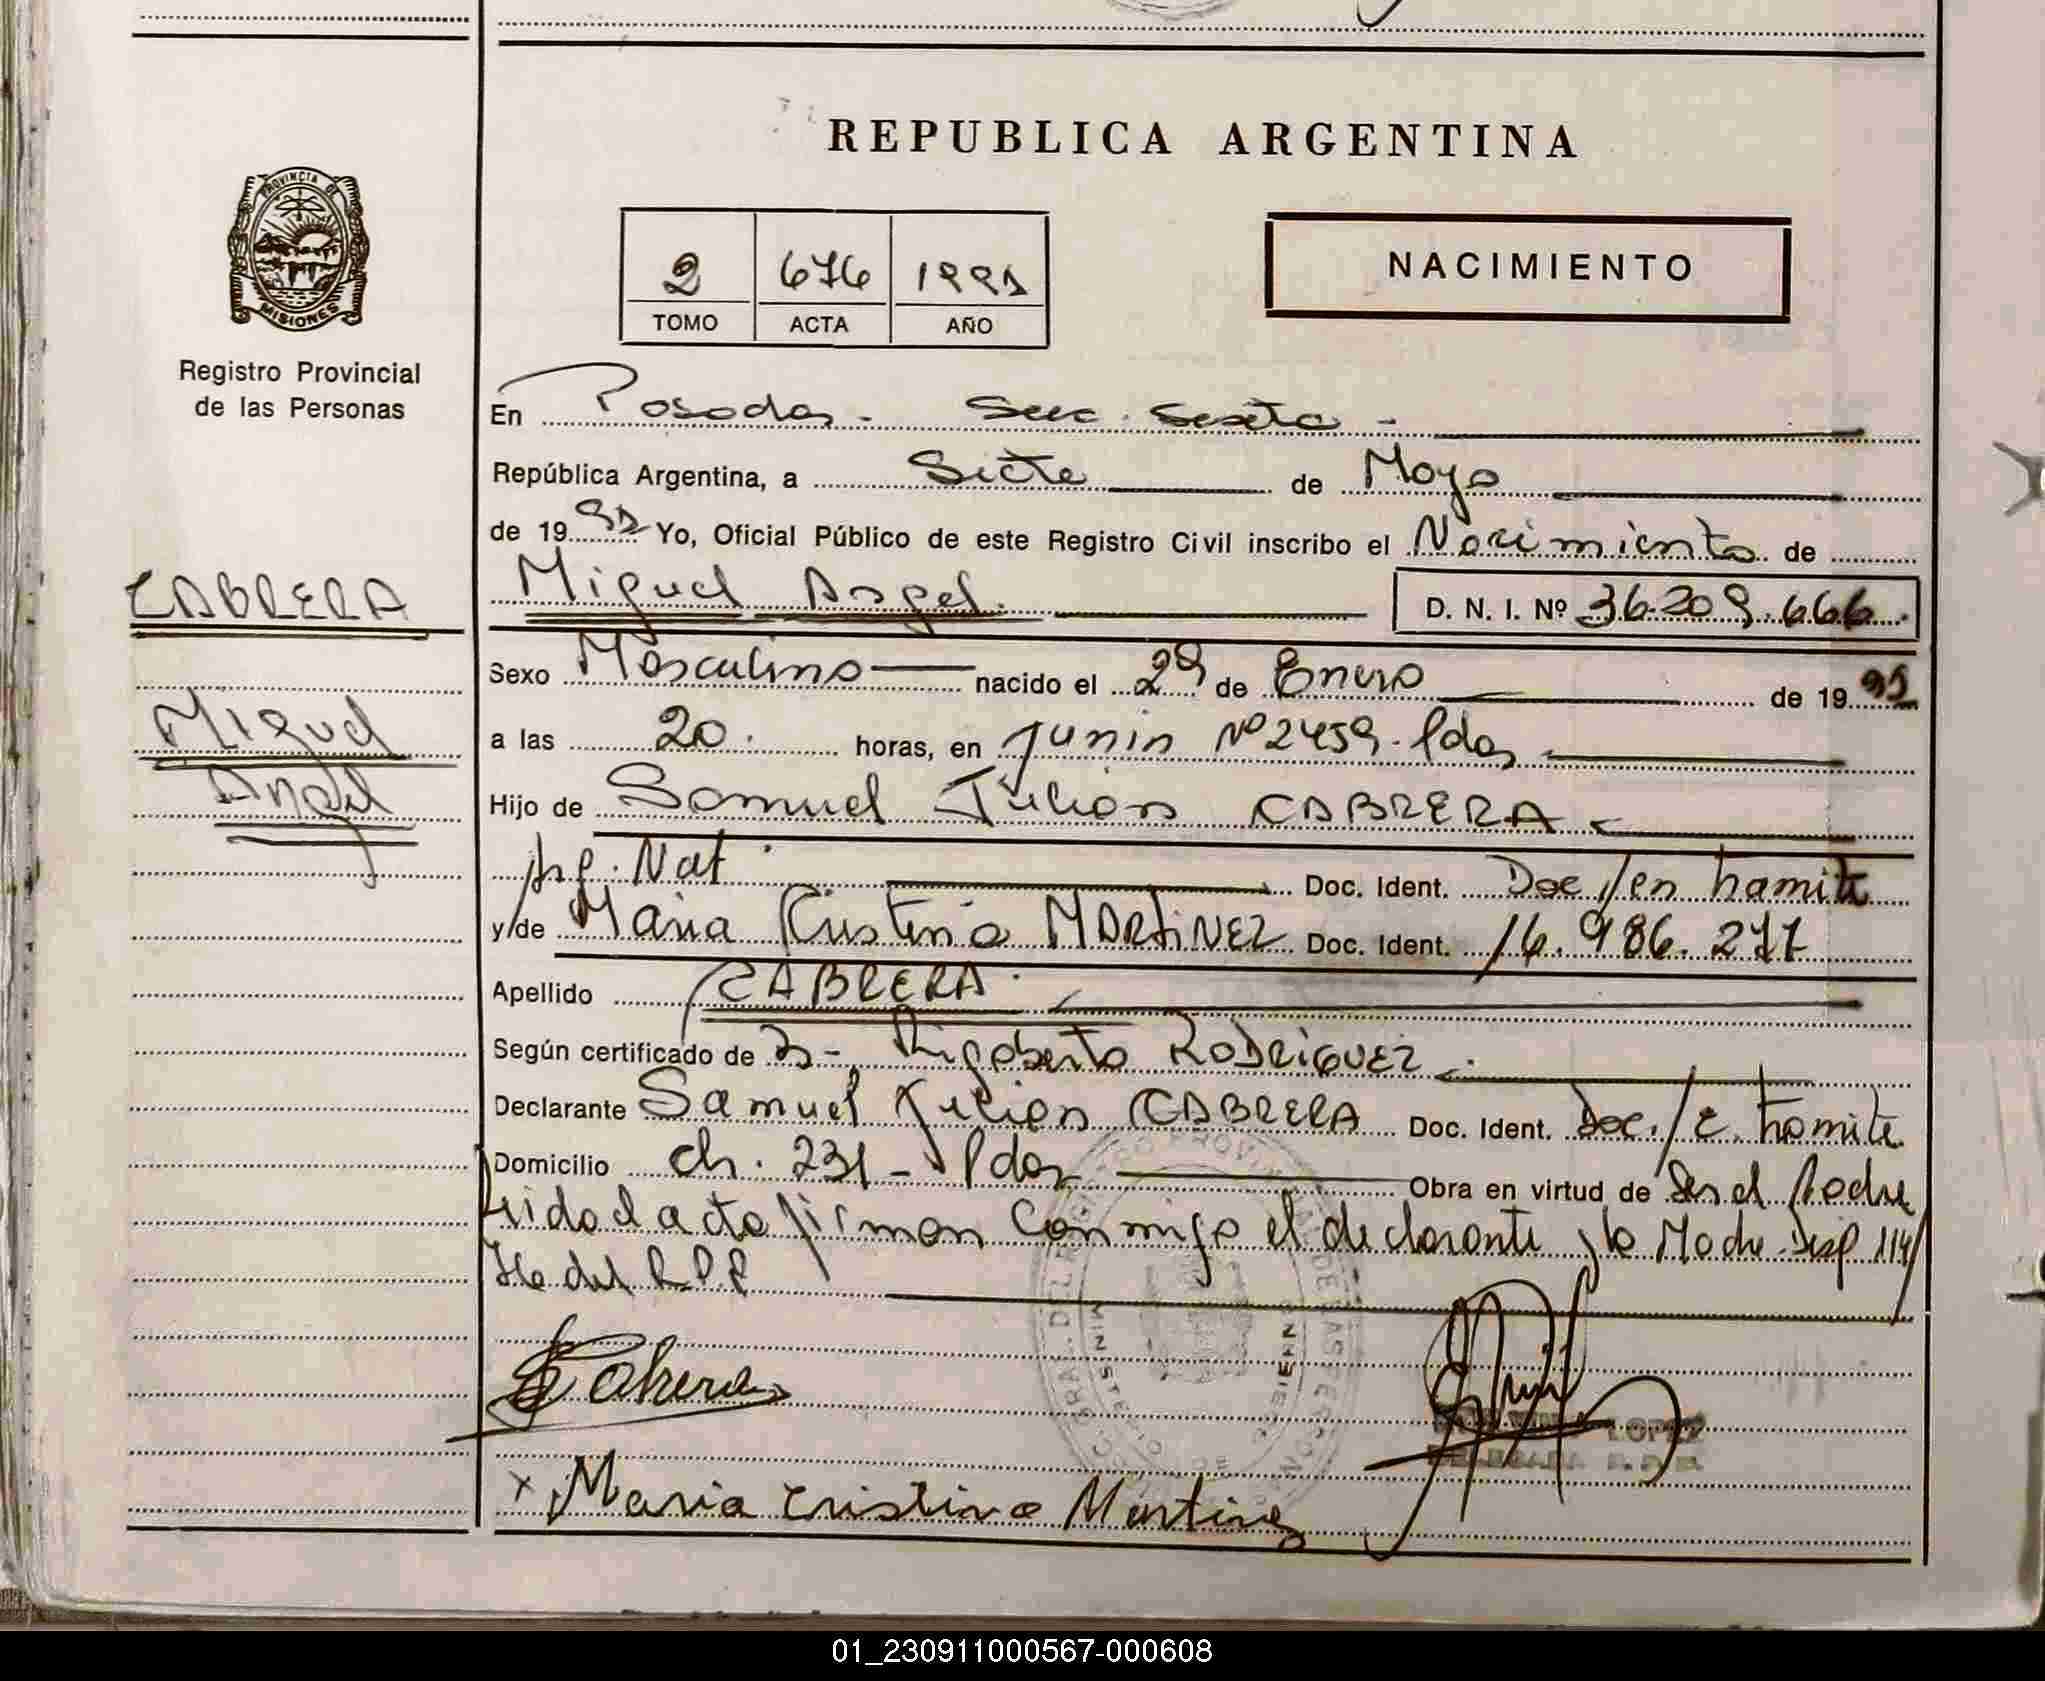 REPUBLICA ARGENTINA
PROVINCIA DE MISIONES
Registro Provincial
de las Personas
2 676 1991
TOMO ACTA AÑO
NACIMIENTO
En Posadas - Secc. Sexta -
República Argentina, a Siete de Mayo
de 1991 Yo, Oficial Público de este Registro Civil inscribo el Nacimiento de
CABRERA
Miguel Angel
Miguel Angel. D. N. I. Nº 36.209.666.
Sexo Masculino nacido el 29 de Enero de 1991
a las 20. horas, en Junin Nº 2459. Pdas
Hijo de Samuel Julian CABRERA
Arg. Nat. Doc. Ident. Doc/en tramite
y/de Maria Cristina MARTINEZ Doc. Ident. 16.986.277
Apellido CABRERA.
Según certificado de Rigoberto RODRIGUEZ.
Declarante Samuel Julian CABRERA Doc. Ident. Doc./e. tramite
Domicilio ch. 231 - Pdas Obra en virtud de Ser el Padre
Leido el acta firman conmigo el declarante y la Madre. Disp 114/
del R.P.P.
Cabrera
LOPEZ
DELEGADA R.P.P.
x Maria Cristina Martinez
01_230911000567-000608